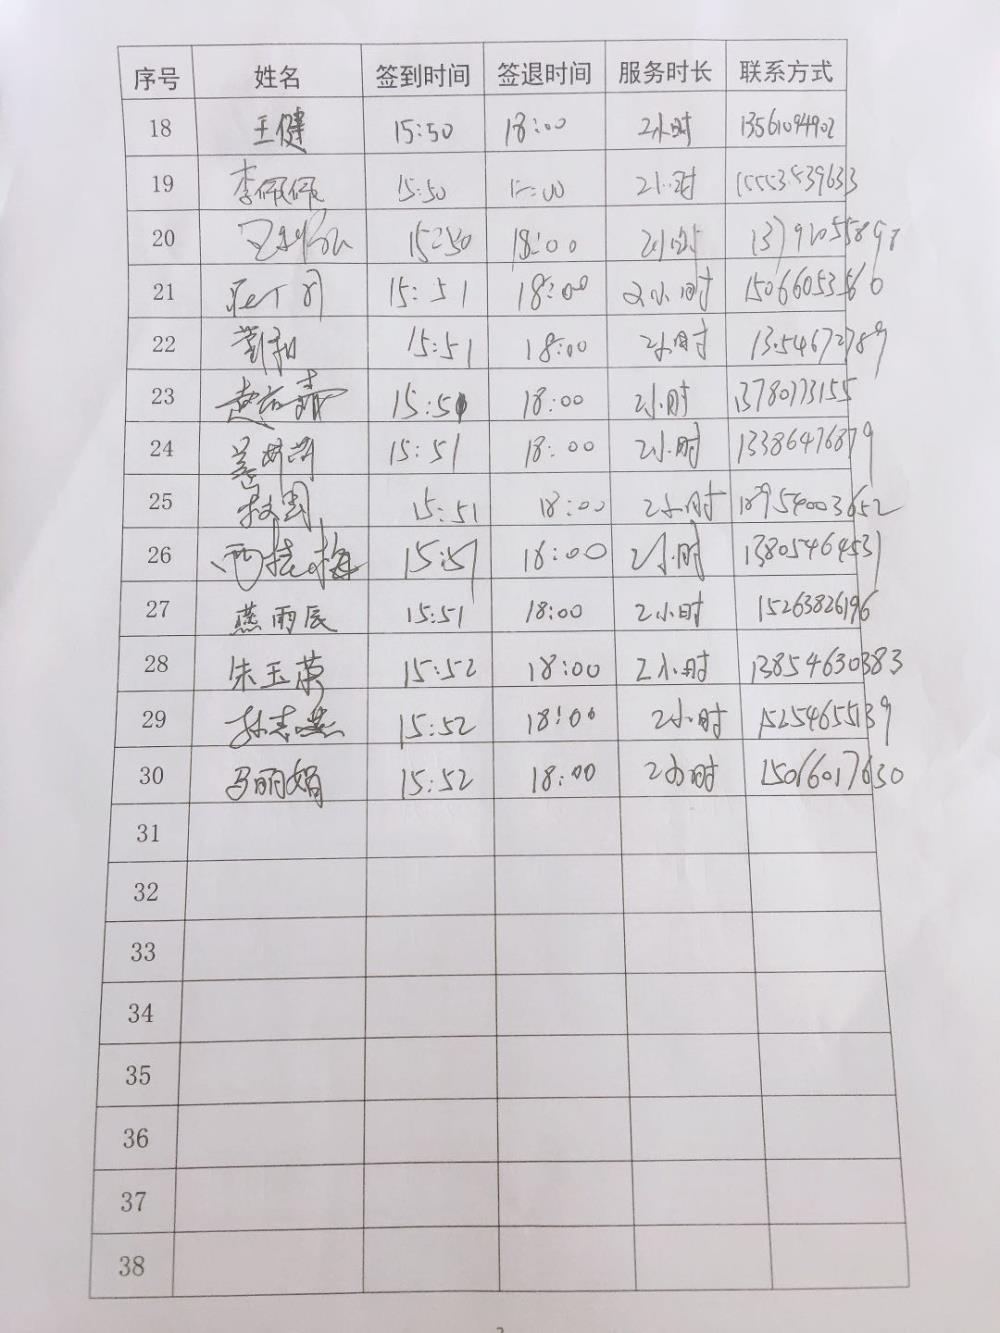 序号 姓名 签到时间 签退时间 服务时长 联系方式
18 王健 15:50 18:00 2小时 13561094902
19 李佩佩 15:50 18:00 2小时 15553539633
20 15:50 18:00 2小时
21 15:51 18:00 2小时 15066053560
22 15:51 18:00 2小时 13954672789
23 15:51 18:00 2小时 1378073155
24 15:51 18:00 2小时 13386476879
25 15:51 18:00 2小时 18954003652
26 15:51 18:00 2小时 13805464531
27 燕雨辰 15:51 18:00 2小时 15263826196
28 朱玉荣 15:52 18:00 2小时 13854630383
29 孙志燕 15:52 18:00 2小时 15254655139
30 马丽娟 15:52 18:00 2小时 15066017630
31
32
33
34
35
36
37
38